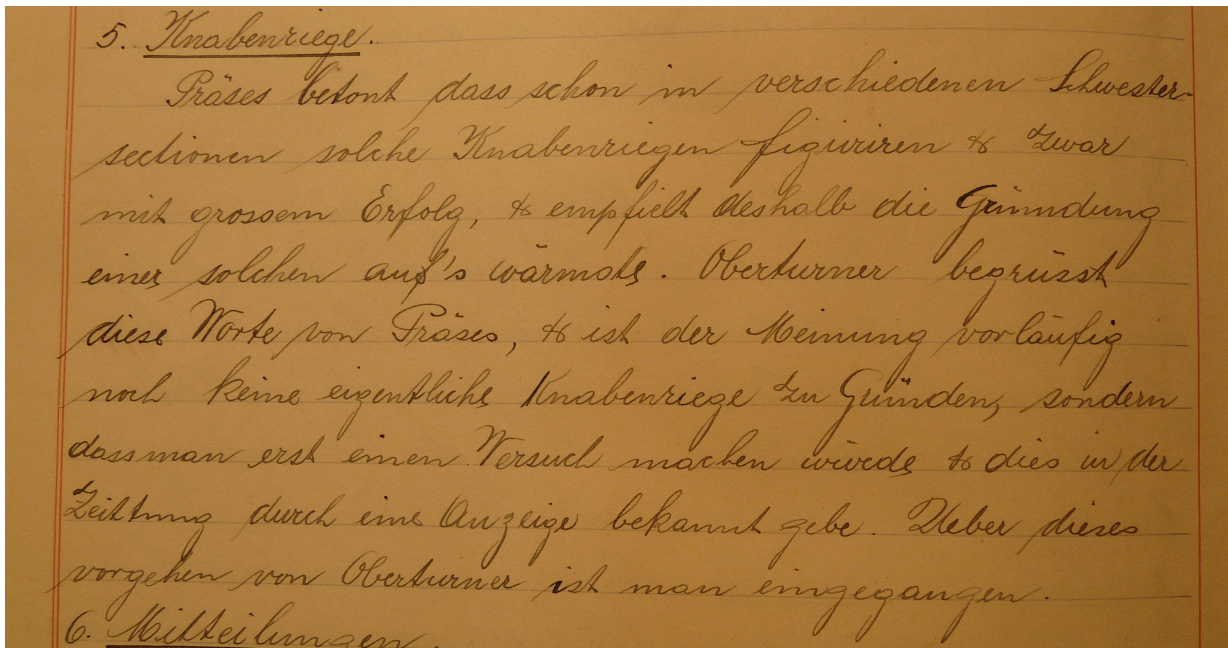 5. Knabenriege.
Präses betont dass schon in verschiedenen Schwester-
sectionen solche Knabenriegen figuriren & zwar
mit grossem Erfolg, & empfielt deshalb die Gründung
einer solchen auf's wärmste. Oberturner begrüsst
diese Worte von Präses, & ist der Meinung vorläufig
noch keine eigentliche Knabenriege zu Gründen, sondern
dass man erst einen Versuch machen würde & dies in der
Zeittung durch eine Anzeige bekannt gebe. Ueber dieses
vorgehen von Oberturner ist man eingegangen.
6. Mitteilungen.